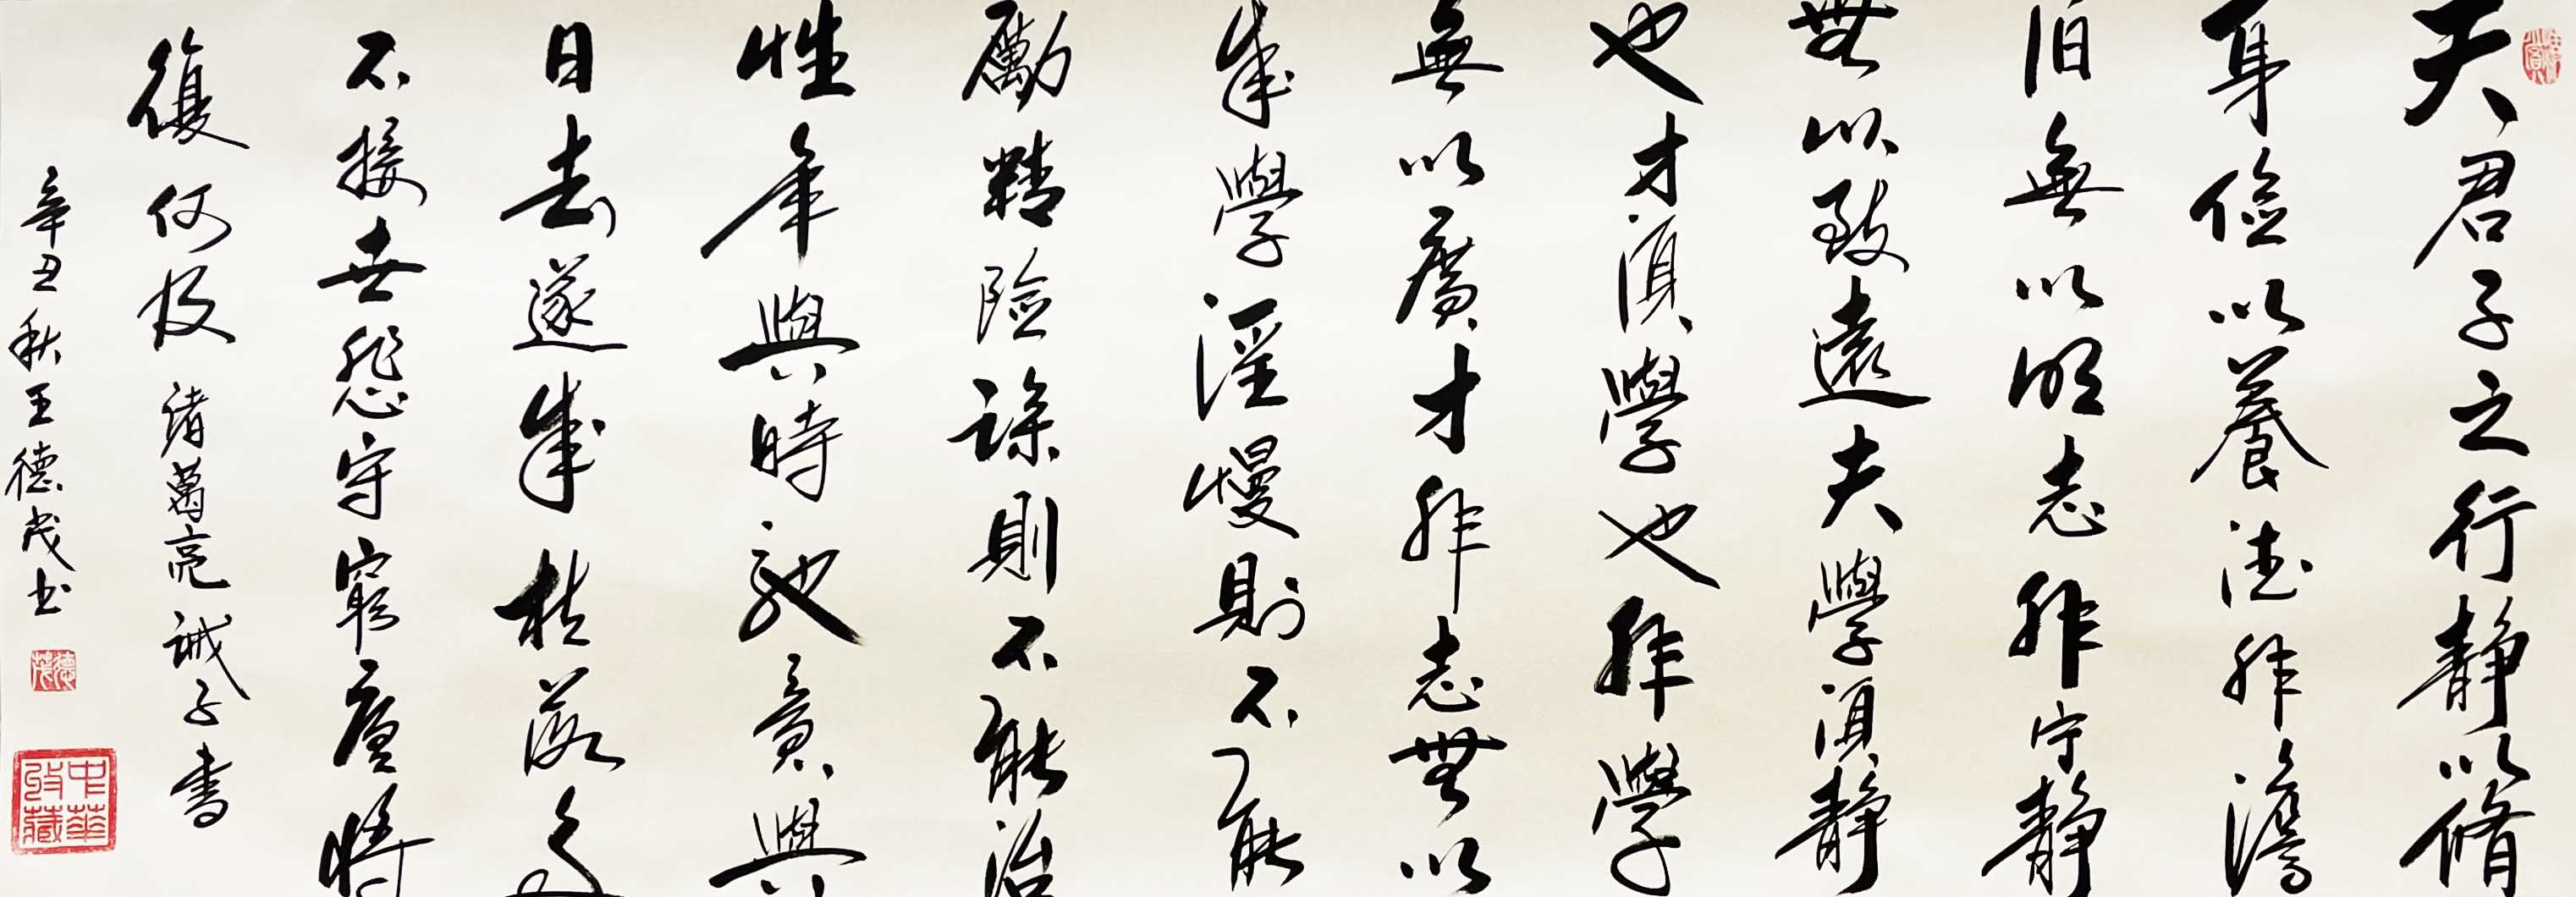 夫君子之行静以脩
身儉以養德非澹
泊無以明志非宁静
無以致遠夫學須静
也才須學也非學
無以廣才非志無以
成學淫慢則不能
勵精險躁則不能治
性年與時馳意與
日去遂成枯落多
不接世悲守窮廬將
復何及 諸葛亮誡子書
辛丑秋王德茂书
德茂
中華收藏